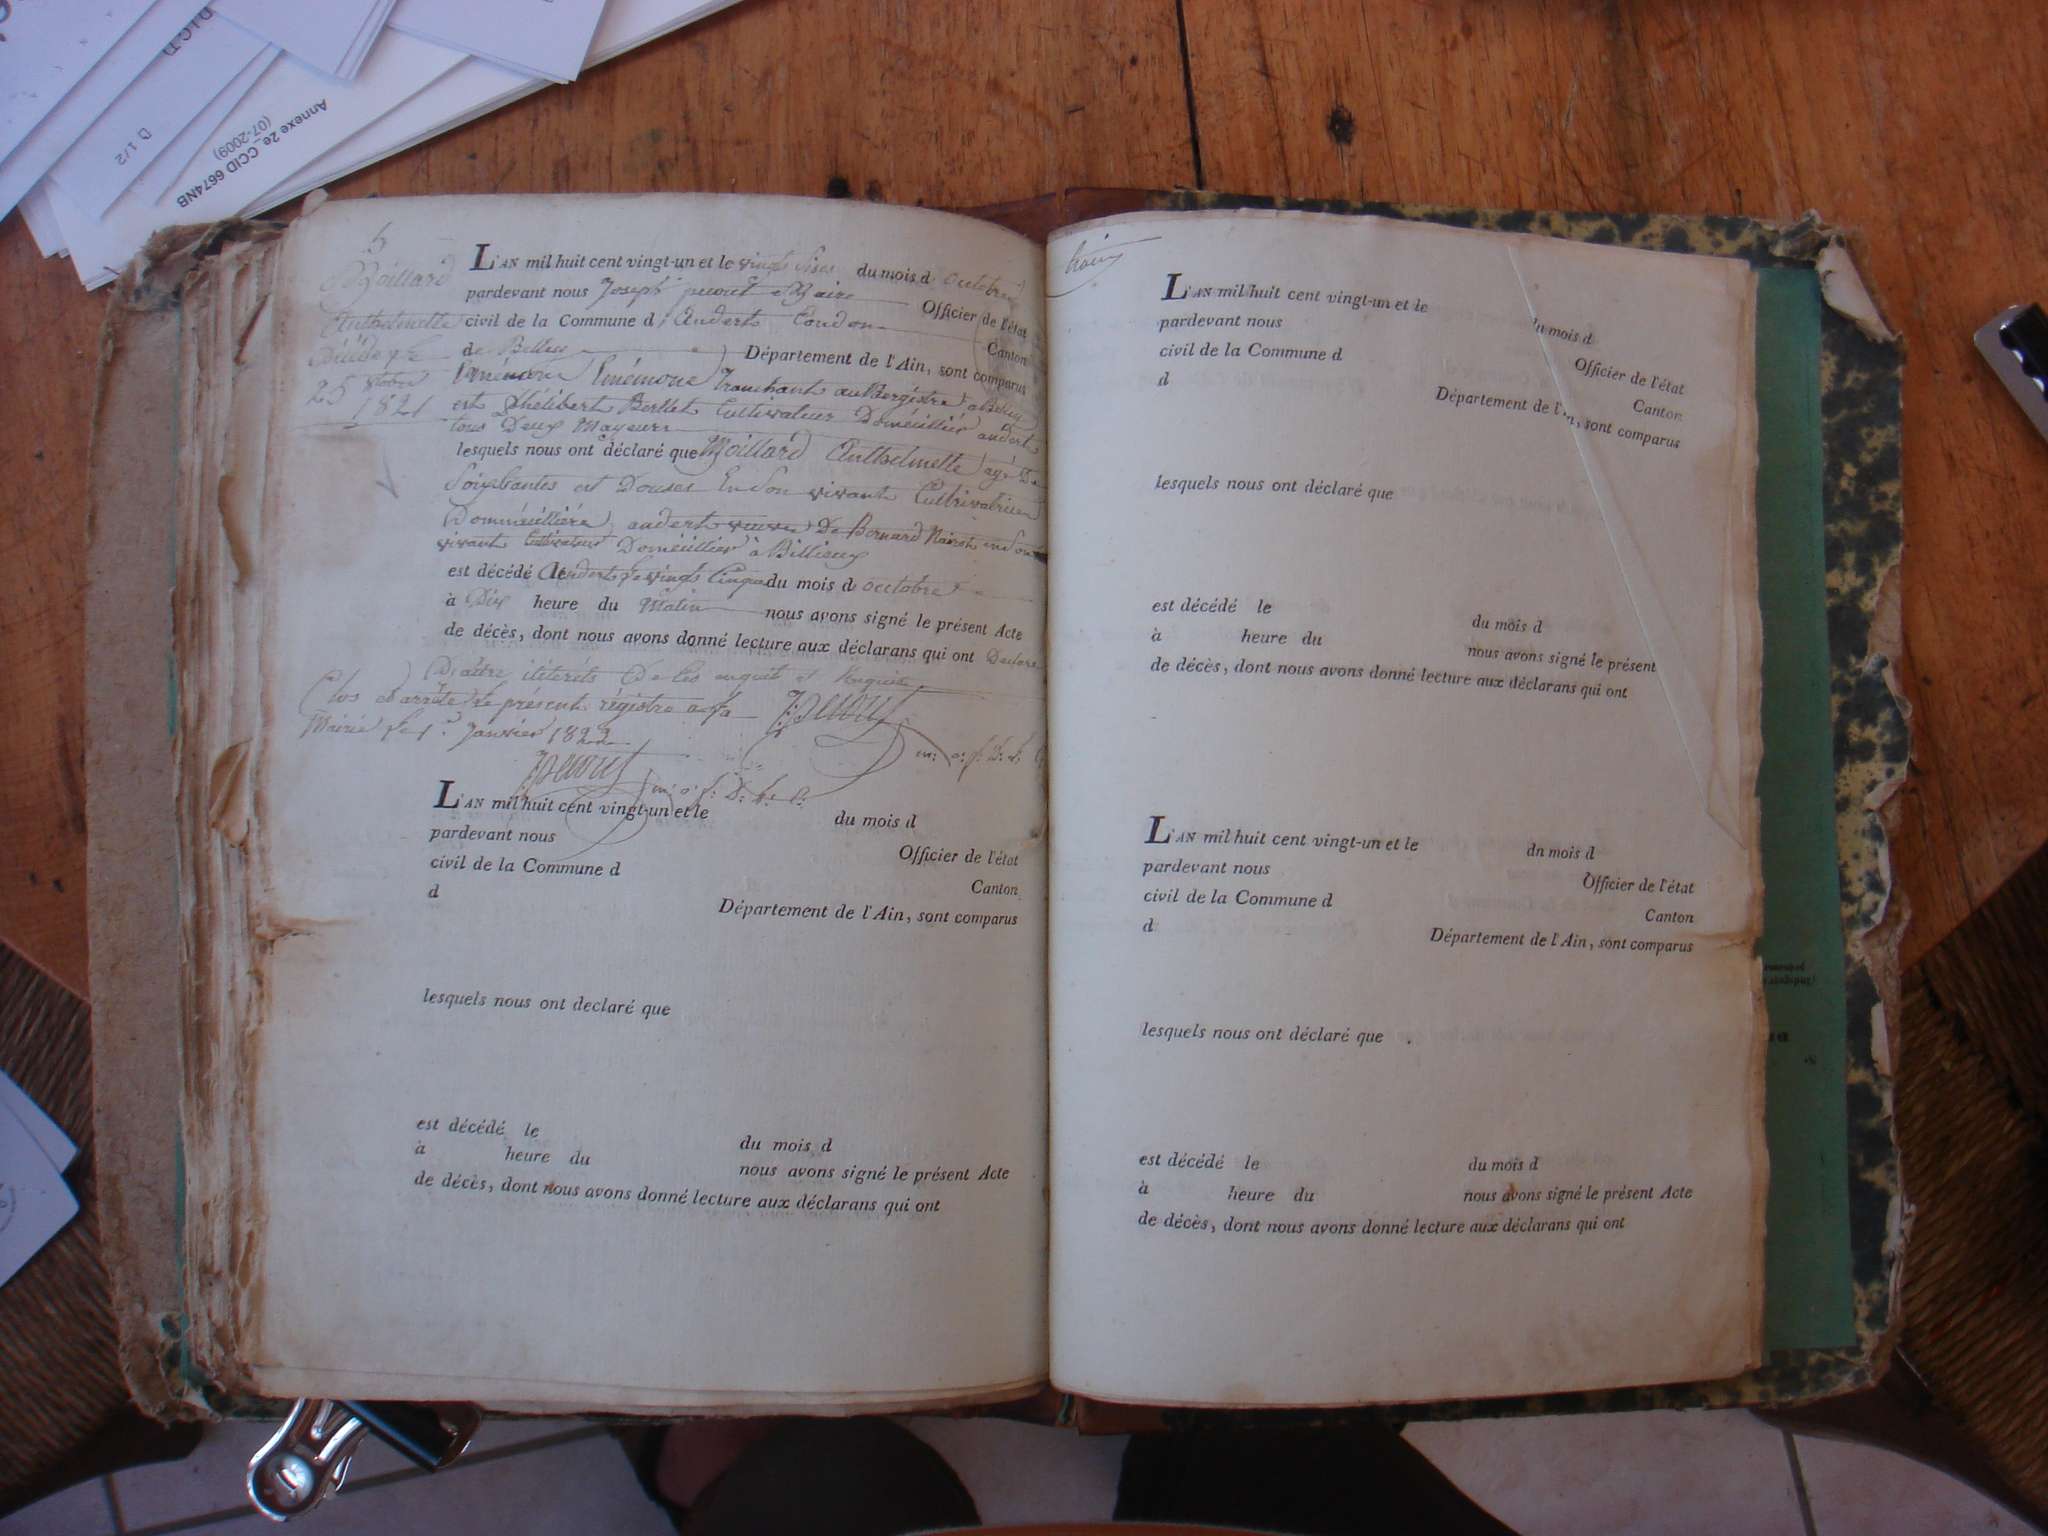 D 1/2
Annexe 2e_CCID 6674NB
(07-2009)
6
Moillard
Anthelmette
25
1821
L'AN mil huit cent vingt-un et le vingt sixes du mois d octobre
pardevant nous Joseph peroud Maire Officier de l'état
civil de la Commune d Andert Condon Canton
de Belley Département de l'Ain, sont comparus
Tranchant auBergiste a Belley
est phélibert Berllet Cultivateur andert
tous Deux Mayeurs
lesquels nous ont déclaré que Moillard Anthelmette agé De
Soixantes est Douses En Son vivant Cultivatrice
andert veuve De Bernard en Son
vivant Cultivateur à Billieux
est décédé le andert le vingt Cinque du mois d occtobre
à Dix heure du Matin nous avons signé le présent Acte
de décès, dont nous avons donné lecture aux déclarans qui ont Declare
De les enquit et Requis
Clos et arrêté le présent régistre a la
Mairie le 1er Janvier 1822
L'AN mil huit cent vingt-un et le du mois d
pardevant nous Officier de l'état
civil de la Commune d Canton
d Département de l'Ain, sont comparus
lesquels nous ont declaré que
est décédé le du mois d
à heure du nous avons signé le présent Acte
de décès, dont nous avons donné lecture aux déclarans qui ont
trois
L'AN mil huit cent vingt-un et le du mois d
pardevant nous Officier de l'état
civil de la Commune d Canton
d Département de l'Ain, sont comparus
lesquels nous ont déclaré que
est décédé le du mois d
à heure du nous avons signé le présent
de décès, dont nous avons donné lecture aux déclarans qui ont
L'AN mil huit cent vingt-un et le dn mois d
pardevant nous Officier de l'état
civil de la Commune d Canton
d Département de l'Ain, sont comparus
lesquels nous ont déclaré que
est décédé le du mois d
à heure du nous avons signé le présent Acte
de décès, dont nous avons donné lecture aux déclarans qui ont